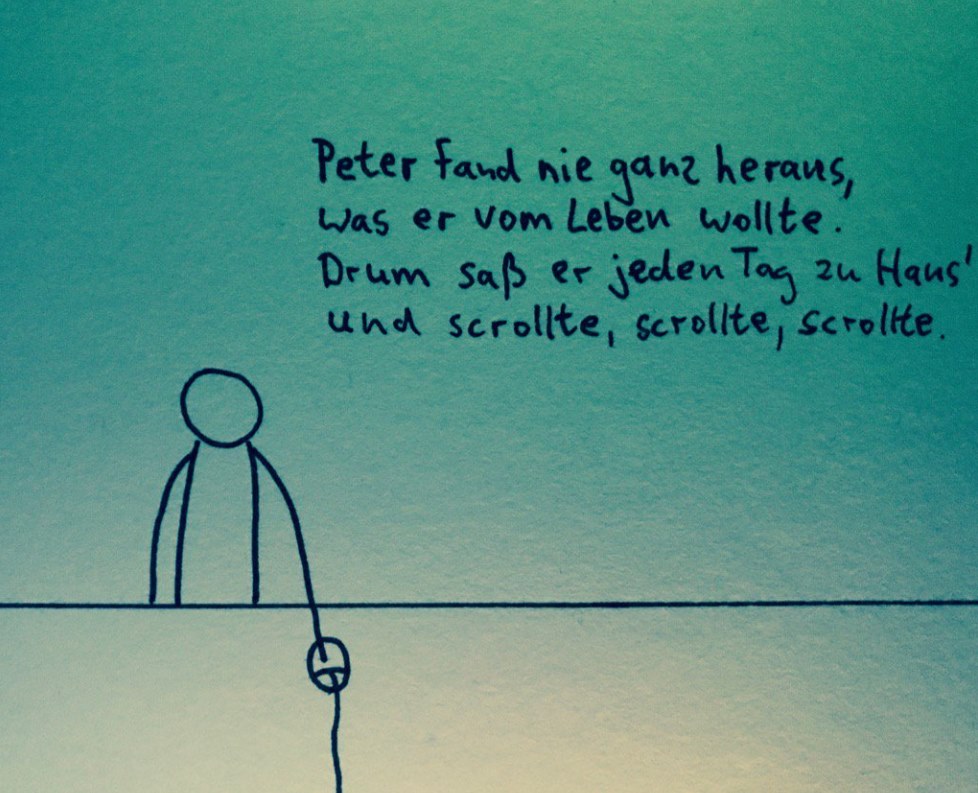 Peter fand nie ganz heraus,
was er vom Leben wollte.
Drum saß er jeden Tag zu Haus'
und scrollte, scrollte, scrollte.